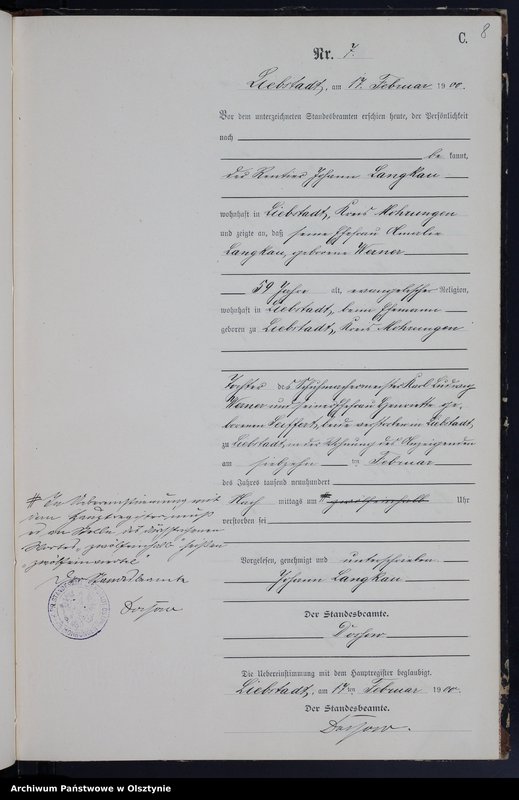 C. 8
Nr. 7.
Liebstadt, am 17. Februar 1900.
Vor dem unterzeichneten Standesbeamten erschien heute, der Persönlichkeit
nach
be kannt,
der Rentier Johann Langkau
wohnhaft in Liebstadt, Kreis Mohrungen
und zeigte an, daß seine Ehefrau Amalie
Langkau, geborene Werner
59 Jahre alt, evangelischer Religion,
wohnhaft in Liebstadt, beim Ehemann
geboren zu Liebstadt, Kreis Mohrungen
Tochter des Schuhmachermeisters Karl Ludwig
Werner und seiner Ehefrau Henriette ge-
borenen Seiffert, beide verstorben in Liebstadt,
zu Liebstadt, in der Wohnung des Anzeigenden
am siebzehn ten Februar
des Jahres tausend neunhundert
Nach mittags um # zwölfeinhalb Uhr
verstorben sei
# In Uebereinstimmung mit
dem Hauptregister muß
es an Stelle des durchstrichenen
Wortes „zwölfeinhalb" heißen
„zwölfeinviertel"
Der Standesbeamte
Vorgelesen, genehmigt und unterschrieben
Johann Langkau
Der Standesbeamte.
Die Uebereinstimmung mit dem Hauptregister beglaubigt.
Liebstadt, am 17ten Februar 1900.
Der Standesbeamte.
Archiwum Państwowe w Olsztynie